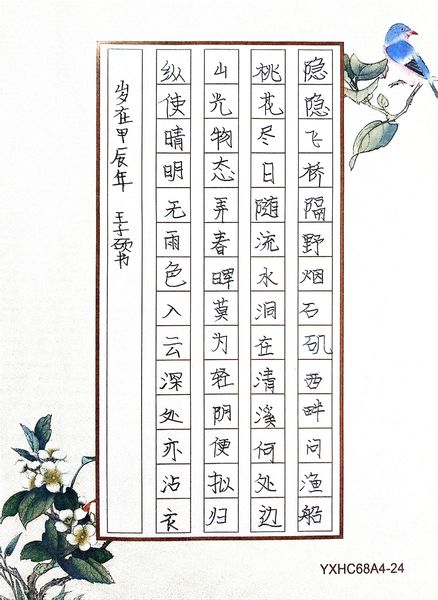 隐隐飞桥隔野烟石矶西畔问渔船
桃花尽日随流水洞在清溪何处边
山光物态弄春晖莫为轻阴便拟归
纵使晴明无雨色入云深处亦沾衣
岁在甲辰年 王子硕书
YXHC68A4-24